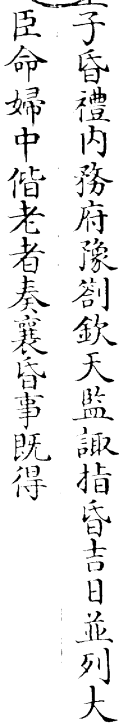 子昏禮内務府豫劄欽天監諏指昏吉日並列大
臣命婦中偕老者奏襄昏事既得